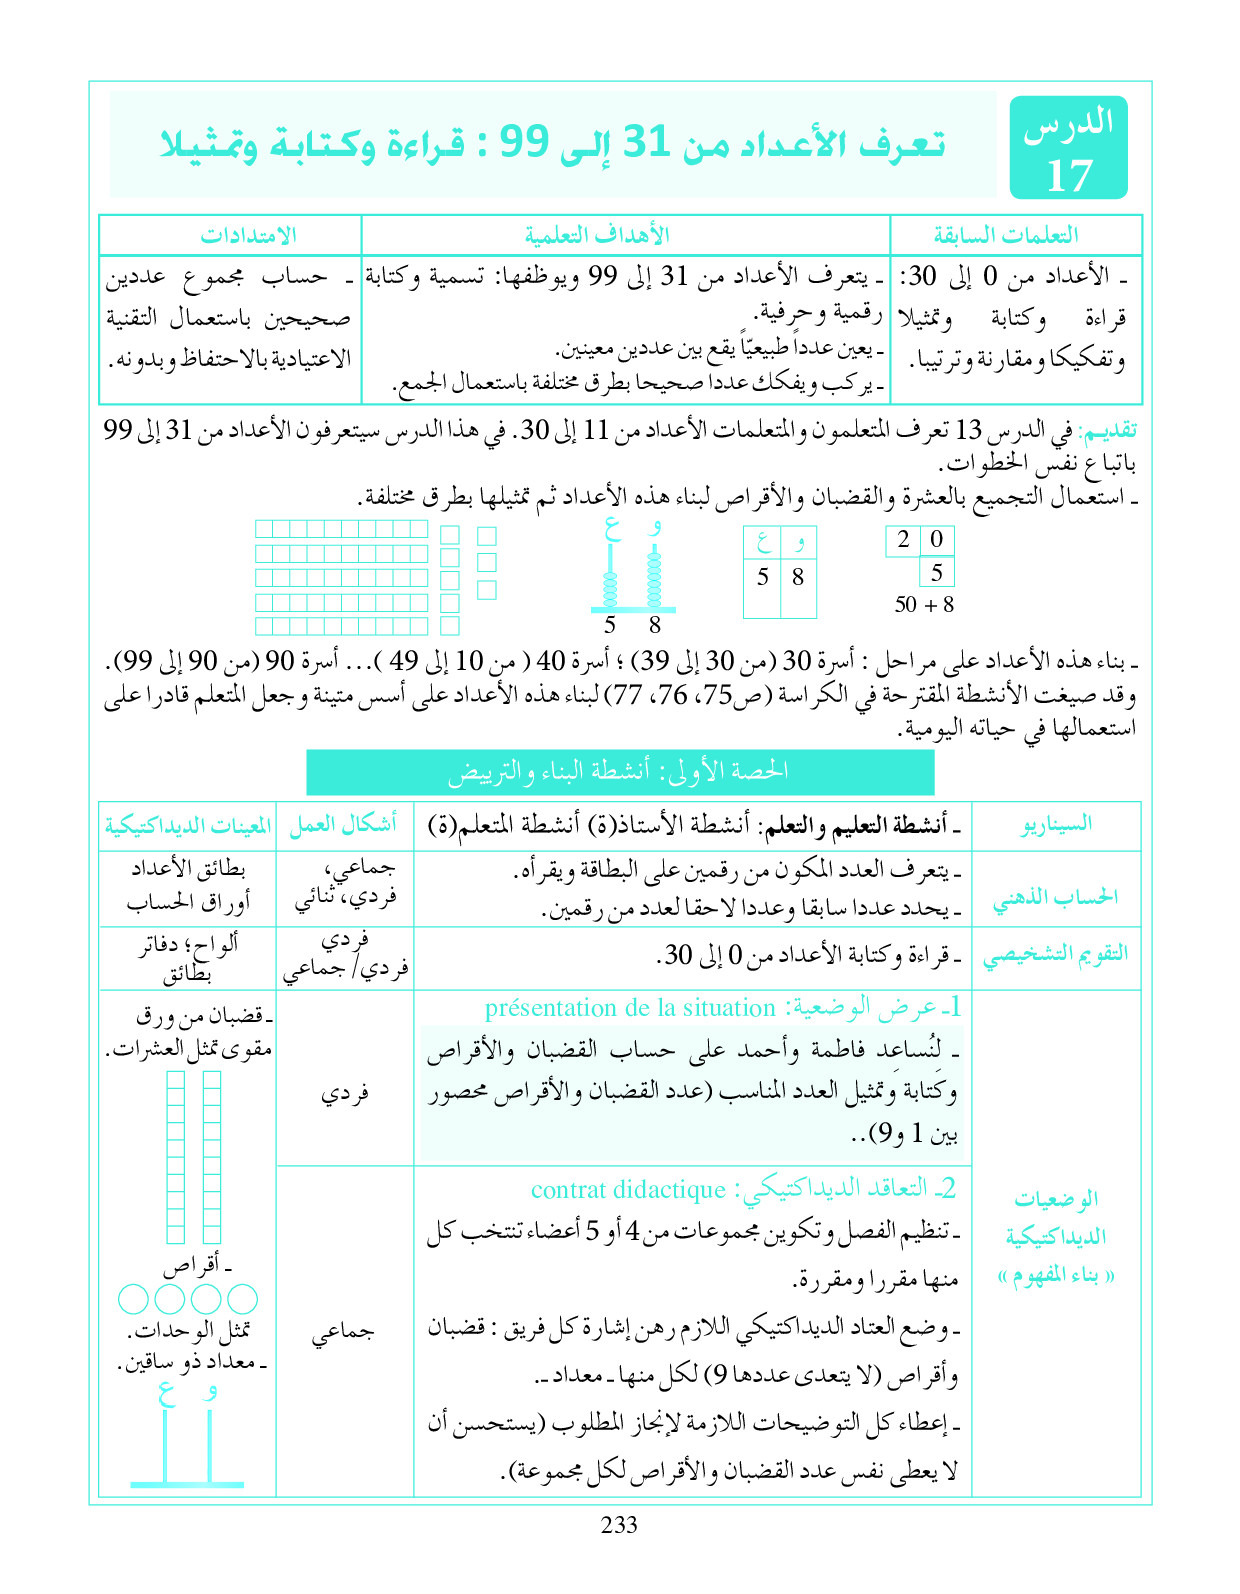 الدرس
17
تعرف الأعداد من 31 إلى 99 : قراءة وكتابة وتمثيلا
التعلمات السابقة
ـ الأعداد من 0 إلى 30:
قراءة وكتابة وتمثيلا
وتفكيكا ومقارنة وترتيبا.
الأهداف التعلمية
ـ يتعرف الأعداد من 31 إلى 99 ويوظفها: تسمية وكتابة
رقمية وحرفية.
ـ يعين عدداً طبيعيّاً يقع بين عددين معينين.
ـ يركب ويفكك عددا صحيحا بطرق مختلفة باستعمال الجمع.
الامتدادات
ـ حساب مجموع عددين
صحيحين باستعمال التقنية
الاعتيادية بالاحتفاظ وبدونه.
تقديم: في الدرس 13 تعرف المتعلمون والمتعلمات الأعداد من 11 إلى 30. في هذا الدرس سيتعرفون الأعداد من 31 إلى 99
باتباع نفس الخطوات.
ـ استعمال التجميع بالعشرة والقضبان والأقراص لبناء هذه الأعداد ثم تمثيلها بطرق مختلفة.
2 0
5
50 + 8
ع و
5 8
ع و
5 8
ـ بناء هذه الأعداد على مراحل : أسرة 30 (من 30 إلى 39) ؛ أسرة 40 ( من 10 إلى 49 )... أسرة 90 (من 90 إلى 99).
وقد صيغت الأنشطة المقترحة في الكراسة (ص75، 76، 77) لبناء هذه الأعداد على أسس متينة وجعل المتعلم قادرا على
استعمالها في حياته اليومية.
الحصة الأولى: أنشطة البناء والترييض
السيناريو
ـ أنشطة التعليم والتعلم: أنشطة الأستاذ(ة) أنشطة المتعلم(ة)
أشكال العمل
المعينات الديداكتيكية
الحساب الذهني
ـ يتعرف العدد المكون من رقمين على البطاقة ويقرأه.
ـ يحدد عددا سابقا وعددا لاحقا لعدد من رقمين.
جماعي،
فردي، ثنائي
بطائق الأعداد
أوراق الحساب
التقويم التشخيصي
ـ قراءة وكتابة الأعداد من 0 إلى 30.
فردي
فردي/ جماعي
ألواح؛ دفاتر
بطائق
الوضعيات
الديداكتيكية
« بناء المفهوم »
1ـ عرض الوضعية: présentation de la situation
ـ لِنُساعِد فاطمة وأحمد على حساب القضبان والأقراص
وكتابة وتمثيل العدد المناسب (عدد القضبان والأقراص محصور
بين 1 و9)..
فردي
2ـ التعاقد الديداكتيكي: contrat didactique
ـ تنظيم الفصل وتكوين مجموعات من 4 أو 5 أعضاء تنتخب كل
منها مقررا ومقررة.
ـ وضع العتاد الديداكتيكي اللازم رهن إشارة كل فريق : قضبان
وأقراص (لا يتعدى عددها 9) لكل منها ـ معداد ـ.
ـ إعطاء كل التوضيحات اللازمة لإنجاز المطلوب (يستحسن أن
لا يعطى نفس عدد القضبان والأقراص لكل مجموعة).
جماعي
ـ قضبان من ورق
مقوى تمثل العشرات.
ـ أقراص
تمثل الوحدات.
ـ معداد ذو ساقين.
ع و
233